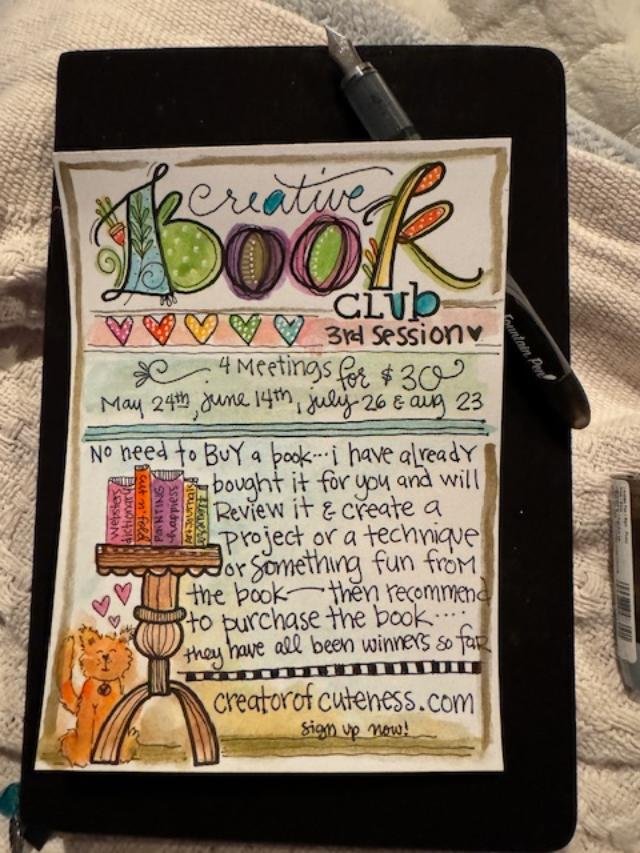 creative
Book
club
3rd session
4 Meetings for $30
May 24th, june 14th, july 26 & aug 23
No need to BUY a book...i have already
bought it for you and will
Review it & create a
project or a technique
or something fun from
the book—then recommend
to purchase the book....
they have all been winners so far
Websters dictionary
cut n' fold
PAINTING
happiness
creatorofcuteness.com
sign up now!
Fountain Pen